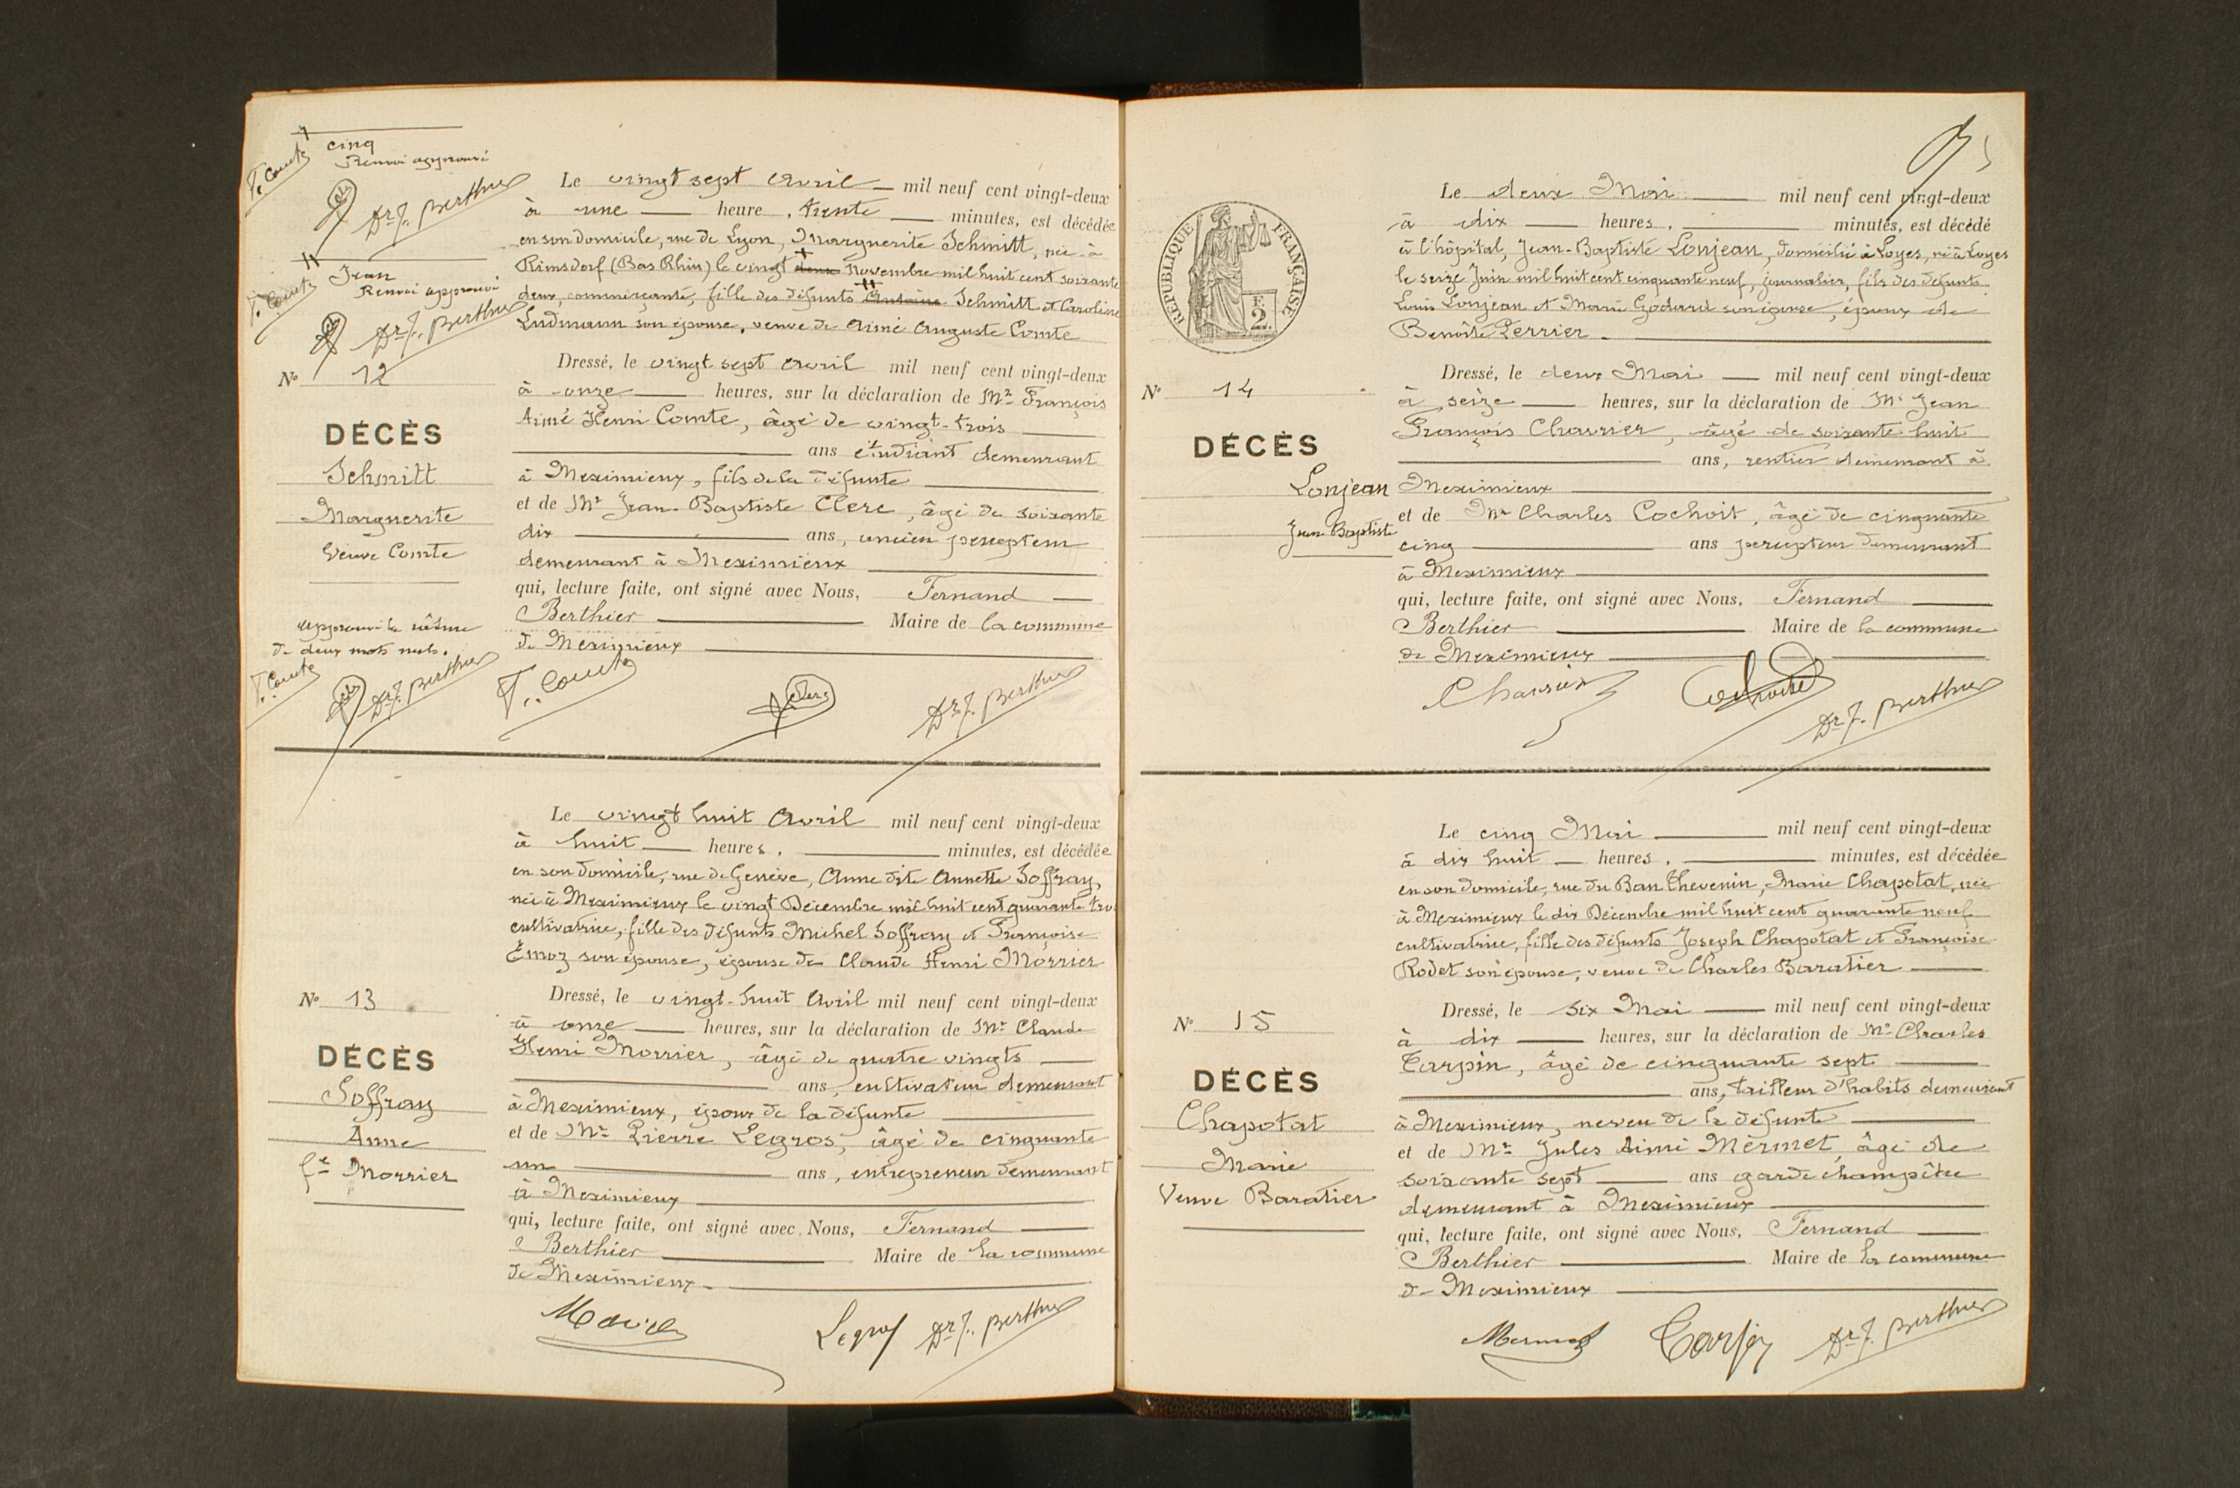 cinq
Renvoi approuvé
F. Comte
Dr F. Berthier
Jean
Renvoi approuvé
F. Comte
Dr F. Berthier
No 12
DÉCÈS
Schmitt
Marguerite
Veuve Comte
Approuvé la râture
de deux mots nuls.
F. Comte
Dr F. Berthier
Le vingt sept Avril mil neuf cent vingt-deux
à une heure, trente minutes, est décédée
en son domicile, rue de Lyon, Marguerite Schmitt, née à
Rimsdorf (Bas Rhin) le vingt deux Novembre mil huit cent soixante
deux, commerçante, fille des défunts Antoine Schmitt et Caroline
Ludmann son épouse, veuve de Aimé Auguste Comte
Dressé, le vingt sept Avril mil neuf cent vingt-deux
à onze heures, sur la déclaration de Mr François
Aimé Henri Comte, âgé de vingt-trois
ans étudiant demeurant
à Meximieux, fils de la défunte
et de Mr Jean-Baptiste Clerc, âgé de soixante
dix ans, ancien percepteur
demeurant à Meximieux
qui, lecture faite, ont signé avec Nous, Fernand
Berthier Maire de la commune
de Meximieux
F. Comte Clerc Dr F. Berthier
No 13
DÉCÈS
Soffray
Anne
fe Morrier
Le vingt huit Avril mil neuf cent vingt-deux
à huit heures, minutes, est décédée
en son domicile, rue de Genève, Anne dite Annette Soffray,
née à Meximieux le vingt Décembre mil huit cent quarante troi
cultivatrice, fille des défunts Michel Soffray et Françoise
Emoz son épouse, épouse de Claude Henri Morrier
Dressé, le vingt-huit Avril mil neuf cent vingt-deux
à onze heures, sur la déclaration de Mr Claude
Henri Morrier, âgé de quatre vingts
ans, cultivateur demeurant
à Meximieux, époux de la défunte
et de Mr Pierre Legros, âgé de cinquante
un ans, entrepreneur demeurant
à Meximieux
qui, lecture faite, ont signé avec Nous, Fernand
Berthier Maire de la commune
de Meximieux
Legros Dr F. Berthier
RÉPUBLIQUE FRANÇAISE
F.
2
No 14
DÉCÈS
Lonjean
Jean-Baptiste
Le deux Mai mil neuf cent vingt-deux
à dix heures, minutes, est décédé
à l'hôpital, Jean-Baptiste Lonjean, domicilié à Loyes, né à Loyes
le seize Juin mil huit cent cinquante neuf, journalier, fils des défunts
Louis Lonjean et Marie Godard son épouse, époux de
Benoîte Perrier.
Dressé, le deux Mai mil neuf cent vingt-deux
à seize heures, sur la déclaration de Mr Jean
François Chavrier, âgé de soixante huit
ans, rentier demeurant à
Meximieux
et de Mr Charles Cochoit, âgé de cinquante
cinq ans percepteur demeurant
à Meximieux
qui, lecture faite, ont signé avec Nous, Fernand
Berthier Maire de la commune
de Meximieux
Chavrier Dr F. Berthier
No 15
DÉCÈS
Chapotat
Marie
Veuve Baratier
Le cinq Mai mil neuf cent vingt-deux
à dix huit heures, minutes, est décédée
en son domicile, rue du Ban Thevenin, Marie Chapotat, née
à Meximieux le dix Décembre mil huit cent quarante neuf
cultivatrice, fille des défunts Joseph Chapotat et Françoise
Rodet son épouse, veuve de Charles Baratier
Dressé, le six Mai mil neuf cent vingt-deux
à dix heures, sur la déclaration de Mr Charles
Carpin, âgé de cinquante sept
ans, tailleur d'habits demeurant
à Meximieux, neveu de la défunte
et de Mr Jules Aimé Mermet, âgé de
soixante sept ans garde champêtre
demeurant à Meximieux
qui, lecture faite, ont signé avec Nous, Fernand
Berthier Maire de la commune
de Meximieux
Mermet Carpin Dr F. Berthier